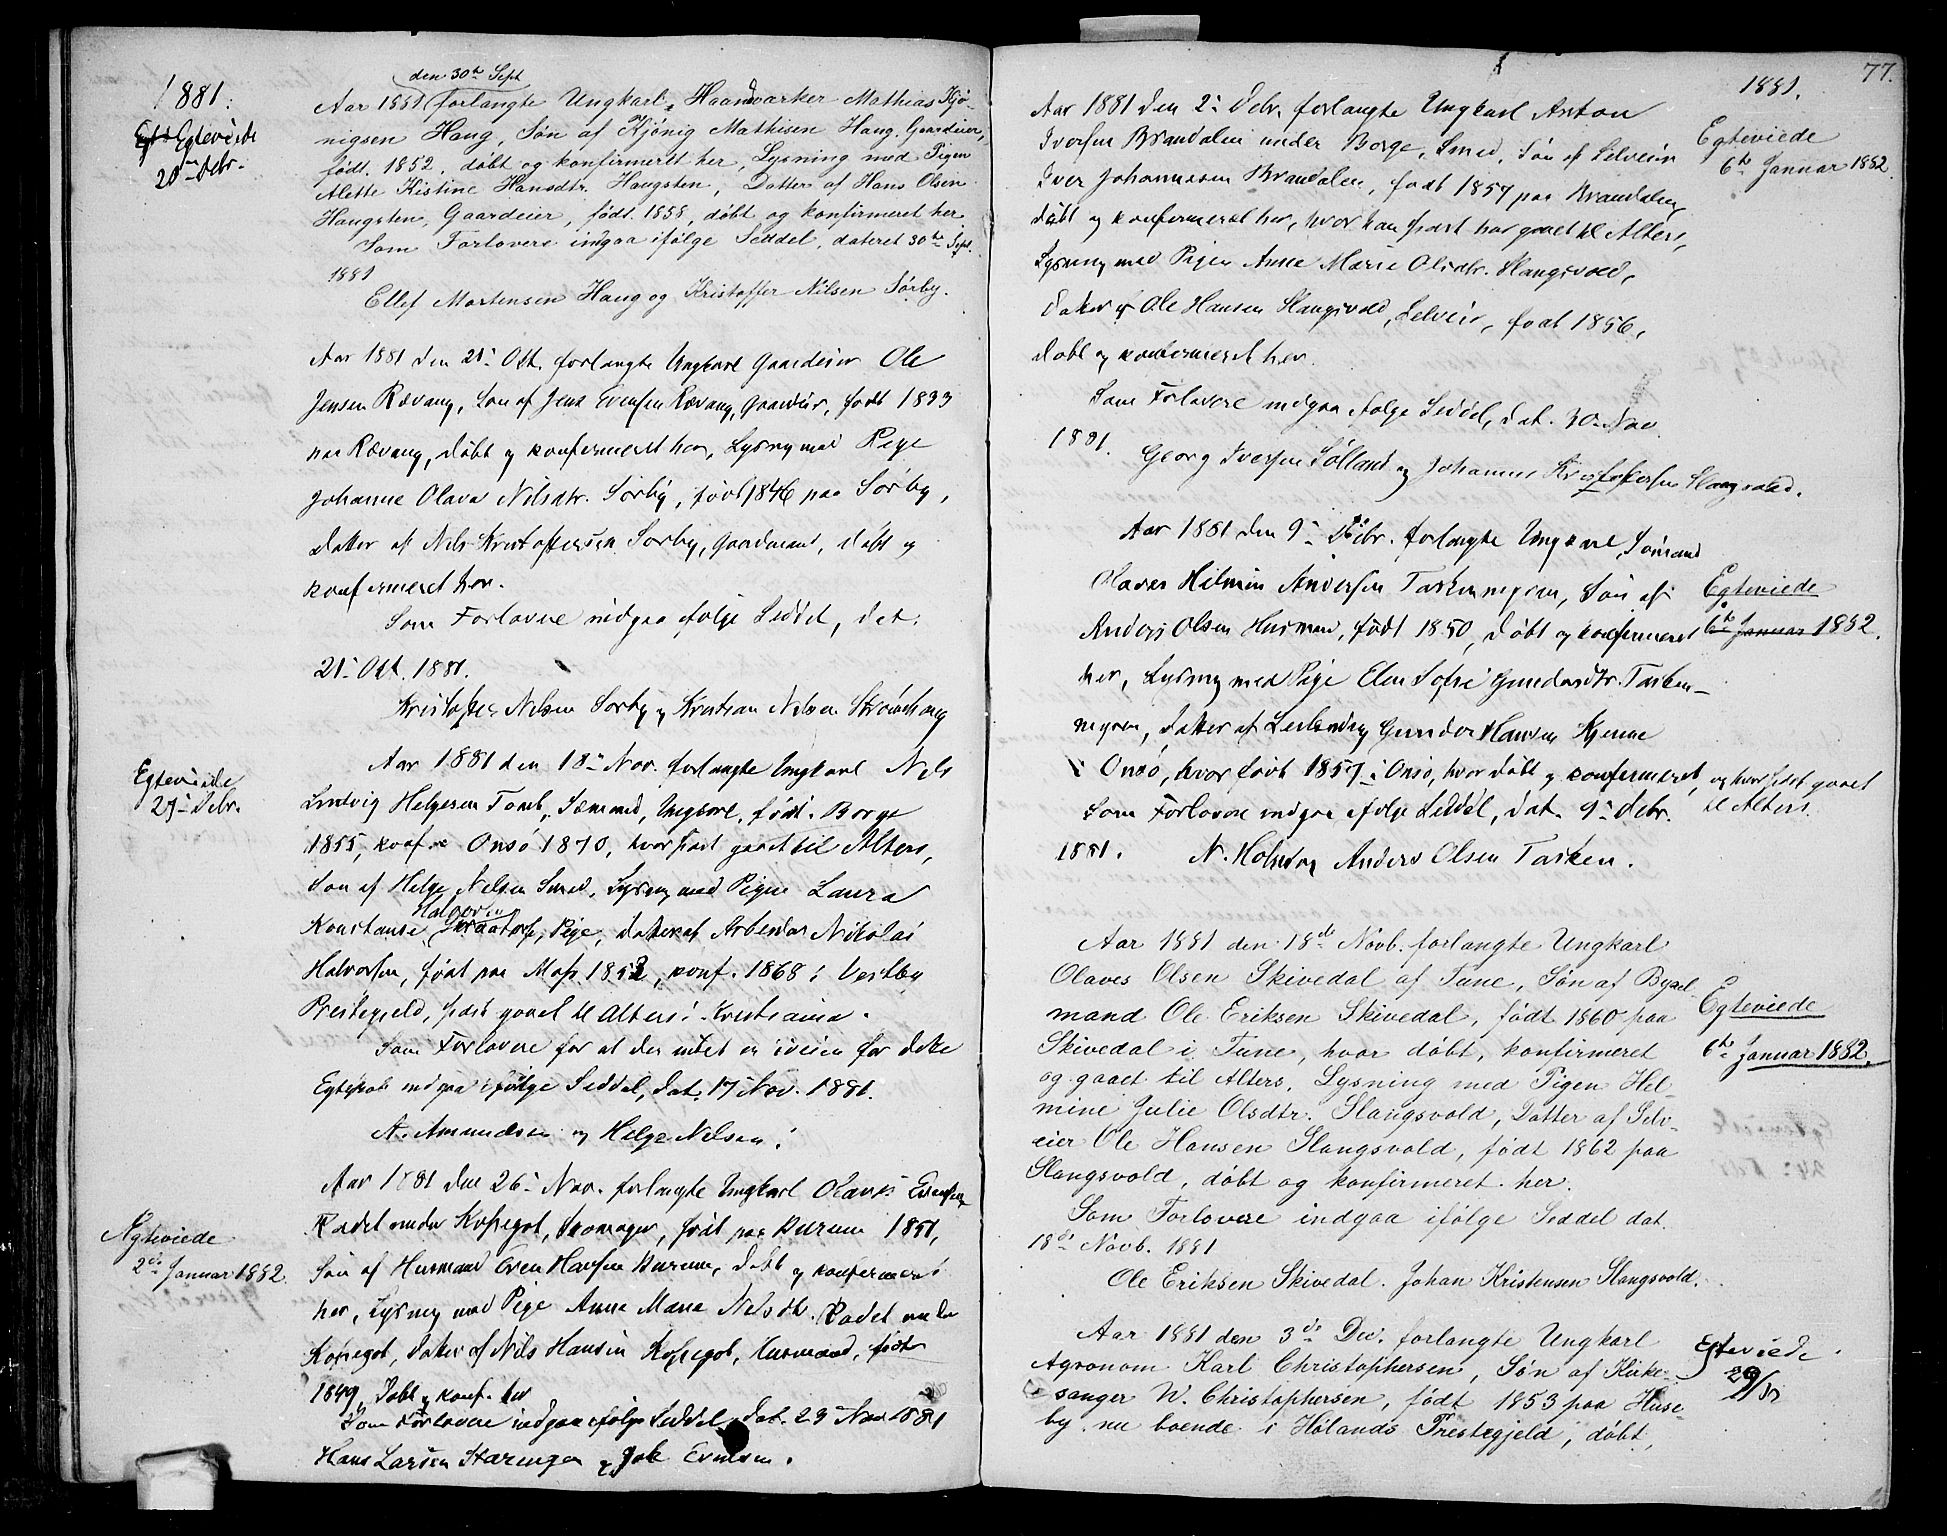 1881.
Egteviede
20de Debr.
den 30te Sept
Aar 1881 forlangte Ungkarl, Haandværker Mathias Kjø-
nigsen Haug, Søn af Kjønig Mathisen Haug, Gaardeier,
født 1852, døbt og konfirmeret her, Lysning med Pigen
Alette Kistine Hansdtr. Haugsten, Datter af Hans Olsen
Haugsten, Gaardeier, født 1858, døbt og konfirmeret her.
Som Forlovere indgaa ifølge Seddel, dateret 30te Sept.
1881
Ellef Mortensen Haug og Kristoffer Nilsen Sørby.
Aar 1881 den 21de Okt. forlangte Ungkarl Gaardeier Ole
Jensen Rævaug, Søn af Jens Evensen Rævaug, Gaardeier, født 1833
paa Rævaug, døbt og konfirmeret her, Lysning med Pige
Johanne Olava Nilsdtr. Sørby, født 1846 paa Sørby,
Datter af Nils Kristoffersen Sørby, Gaardmand, døbt og
konfirmeret her.
Som Forlovere indgaa ifølge Seddel, dat.
21de Okt. 1881.
Kristoffer Nilsen Sørby og Kristian Nilsen
Egteviede
27de Debr.
Aar 1881 den 18de Nov. forlangte Ungkarl Nils
Ludvig Helgesen Tomb, Sømand, Ungkarl, født i Borge
1855, konf. Onsø 1870, hvor sidst gaaet til Alters,
Søn af Helge Nilsen Smed, Lysning med Pigen Laura
Halvorsen
Konstanse, Pige, Datter af Arbeider Nikolai
Halvorsen, født paa Moss 1852, konf. 1868 i Vestby
Prestegjeld, sidst gaaet til Alters i Kristiania.
Som Forlovere for at der intet er iveien for dette
Egteskab indgaa ifølge Seddel, dat. 17 Nov. 1881.
A. Amundsen og Helge Nilsen.
Egteviede
2den Januar 1882
Aar 1881 den 26de Nov. forlangte Ungkarl Olaves Evensen
Rødet under Kossegot, Skomager, født paa Burum 1851,
Søn af Husmand Even Hansen Burum, døbt og konfirmeret
her, Lysning med Pige Anne Marie Nilsdtr. Rødet under
Kossegot, Datter af Nils Hansen Kossegot, Husmand, født
1849, døbt og konf. her
Som Forlovere indgaa ifølge Seddel dat. 23 Nov 1881
Hans Larsen Staringen og Evensen.
77.
1881.
Aar 1881 den 2den Debr. forlangte Ungkarl Anton
Iversen Brandalen under Borge, Smed, Søn af Selveier
Iver Johannesen Brandalen, født 1857 paa Brandalen,
døbt og konfirmeret her, hvor han sidst har gaaet til Alters,
Lysning med Pigen Anne Marie Olsdtr. Slangsvold,
Datter af Ole Hansen Slangsvold, Selveier, født 1856,
døbt og konfirmeret her.
Som Forlovere indgaa ifølge Seddel, dat. 30. Nov.
1881.
Georg Iversen Sølland og Johannes Kristoffersen Slangsvold.
Egteviede
6te Januar 1882.
Aar 1881 den 9de Debr. forlangte Ungkarl, Sømand
Olaves Hilmin Andersen Taskenmyren, Søn af
Anders Olsen Husmand, født 1850, døbt og konfirmeret
her, Lysning med Pige Elen Sofie Gundersdtr. Tasken-
myren, Datter af Leilending Gunder Hansen Kjenne
i Onsø, hvor født 1857 i Onsø, hvor døbt og konfirmeret, og hvor sidst gaaet
til Alters.
Som Forlovere indgaa ifølge Seddel, dat. 9de Debr.
1881. N. Holm og Anders Olsen Tasken.
Egteviede
6te Januar 1882.
Aar 1881 den 18de Novb. forlangte Ungkarl
Olaves Olsen Skivedal af Tune, Søn af Bygsel-
mand Ole Eriksen Skivedal, født 1860 paa
Skivedal i Tune, hvor døbt, konfirmeret
og gaaet til Alters, Lysning med Pigen Hel-
mine Julie Olsdtr. Slangsvold, Datter af Selv-
eier Ole Hansen Slangsvold, født 1862 paa
Slangsvold, døbt og konfirmeret her.
Som Forlovere indgaa ifølge Seddel dat.
18de Novb. 1881
Ole Eriksen Skivedal. Johan Kristensen Slangsvold.
Egteviede
6te Januar 1882.
Aar 1881 den 3de Dec. forlangte Ungkarl
Agronom Karl Christophersen, Søn af Kirke-
sanger W. Christophersen, født 1853 paa Huse-
by, nu boende i Hølands Prestegjeld, døbt,
Egteviede